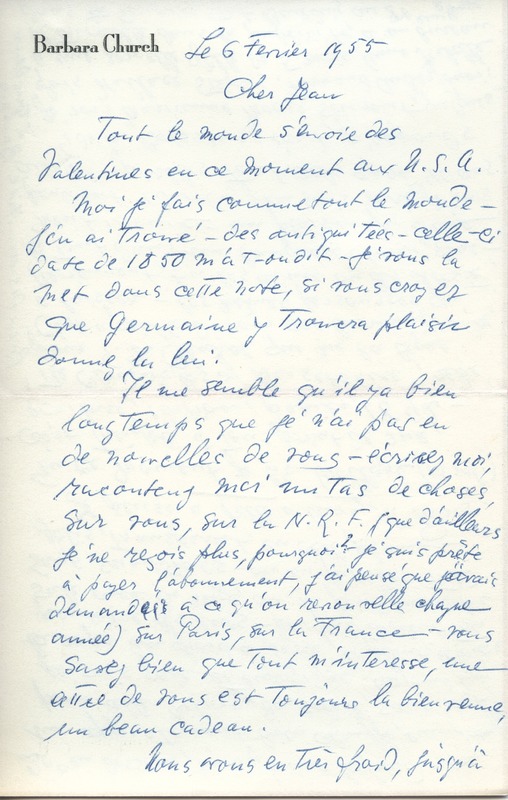 Barbara Church
Le 6 Fevrier 1955
Cher Jean
Tout le monde s'envoie des
Valentines en ce moment aux U.S.A.
Moi je fais comme tout le monde –
j'en ai trouvé – des antiquitées – celle-ci
date de 1850 m'a t-on dit – je vous la
met dans cette note, si vous croyez
que Germaine y trouvera plaisir
donnez la lui.
Il me semble qu'il y a bien
longtemps que je n'ai pas eu
de nouvelles de vous – écrivez moi,
racontez moi un tas de choses
sur vous, sur la N.R.F. (que d'ailleurs
je ne reçois plus, pourquoi? je suis prête
à payer l'abonnement, j'ai pensé que j'avais
demandé à ce qu'on renouvelle chaque
année) sur Paris, sur la France – vous
savez bien que tout m'interesse, une
de vous est toujours la bienvenue,
un beau cadeau.
Nous avons eu très froid, jusqu'à